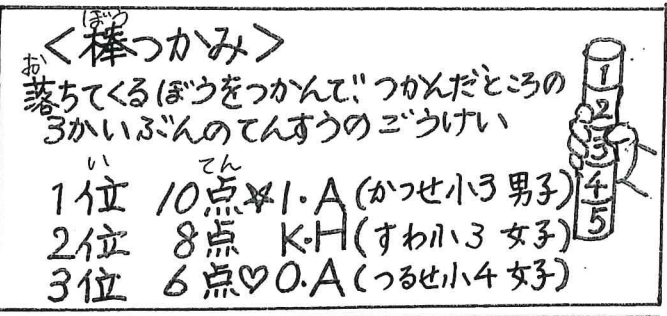 ＜棒つかみ＞
ぼう
落ちてくるぼうをつかんで、つかんだところの
お
3かいぶんのてんすうのごうけい
1位 10点☆I・A(かつせ小3男子)
い てん
2位 8点 K・H(すわ小3女子)
3位 6点♡O・A(つるせ小4女子)
1
2
3
4
5